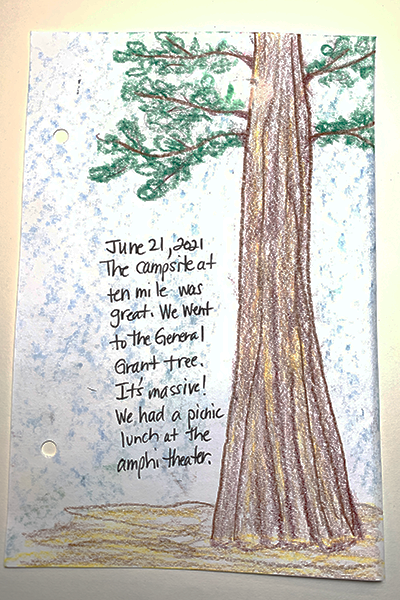 June 21, 2021
The campsite at
ten mile was
great. We went
to the General
Grant tree.
It's massive!
We had a picnic
lunch at the
amphi theater.